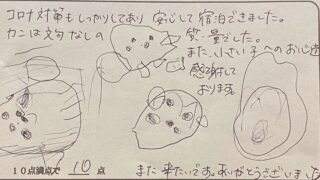 コロナ対策もしっかりしてあり 安心して宿泊できました。
カニは文句なしの 質・量でした。
また、小さい子への お心遣
感謝して
おります。
10点満点で 10 点
また来たいです。ありがとうございました